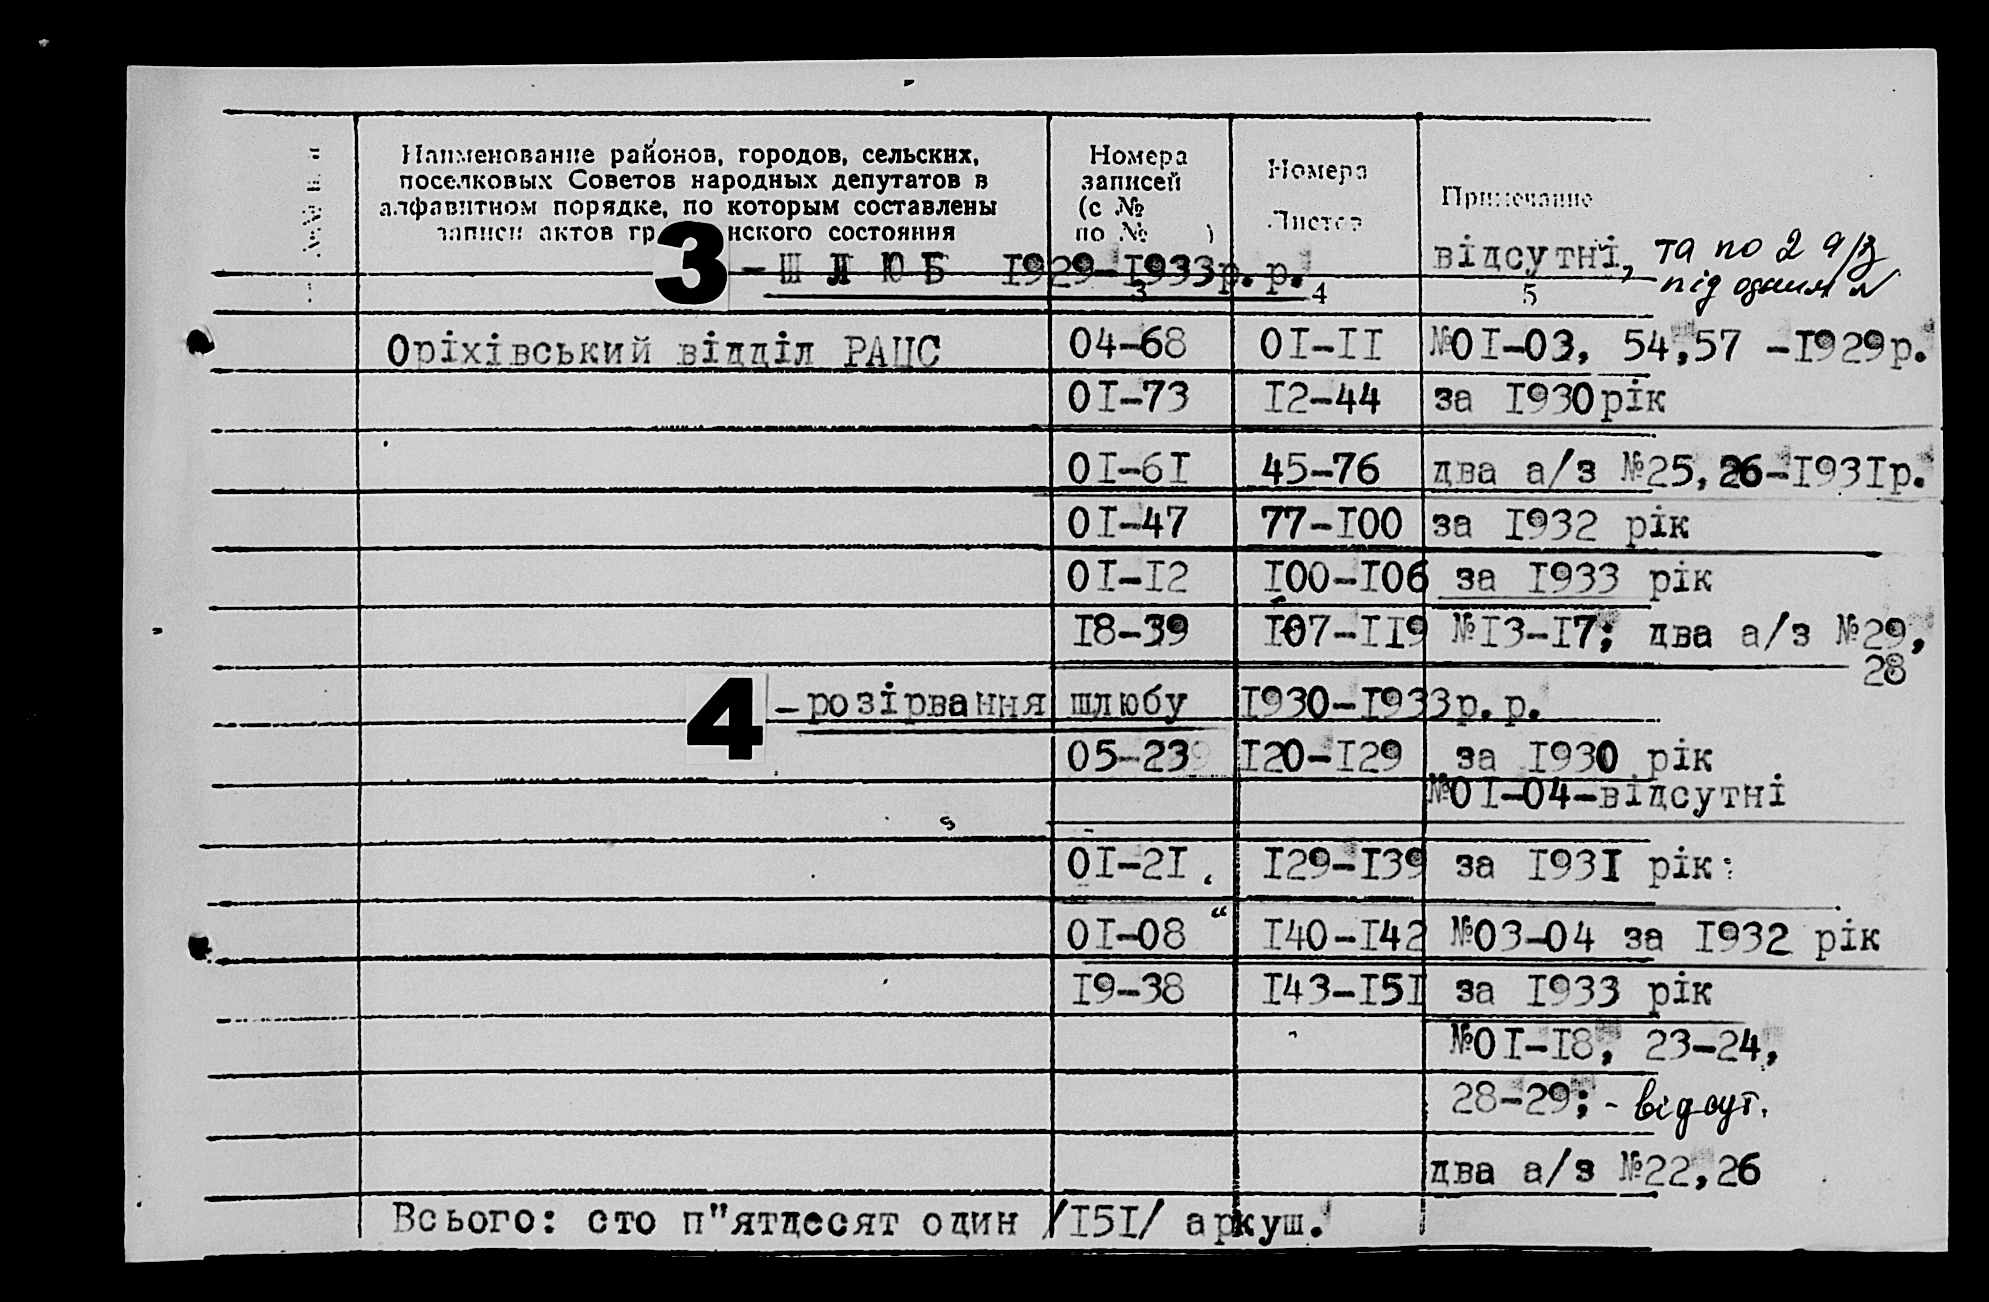 Наименование районов, городов, сельских,
поселковых Советов народных депутатов в
алфавитном порядке, по которым составлены
записи актов гр нского состояния
Номера
записей
(с №
по № )
Номера
Листов
Примечание
відсутні, та по 2 а/з
під одним №
3 – Ш Л Ю Б 1929–1933р.р.
3 4 5
Оріхівський відділ РАЦС 04–68 01–11 №01–03, 54,57 –1929р.
01–73 12–44 за 1930рік
01–61 45–76 два а/з №25,26–1931р.
01–47 77–100 за 1932 рік
01–12 100–106 за 1933 рік
18–39 107–119 №13–17; два а/з №29,
28
4 –розірвання шлюбу 1930–1933р.р.
05–23 120–129 за 1930 рік
№01–04–відсутні
01–21 129–139 за 1931 рік
01–08 140–142 №03–04 за 1932 рік
19–38 143–151 за 1933 рік
№01–18, 23–24,
28–29; - відсут.
два а/з №22,26
Всього: сто п"ятдесят один /151/ аркуш.